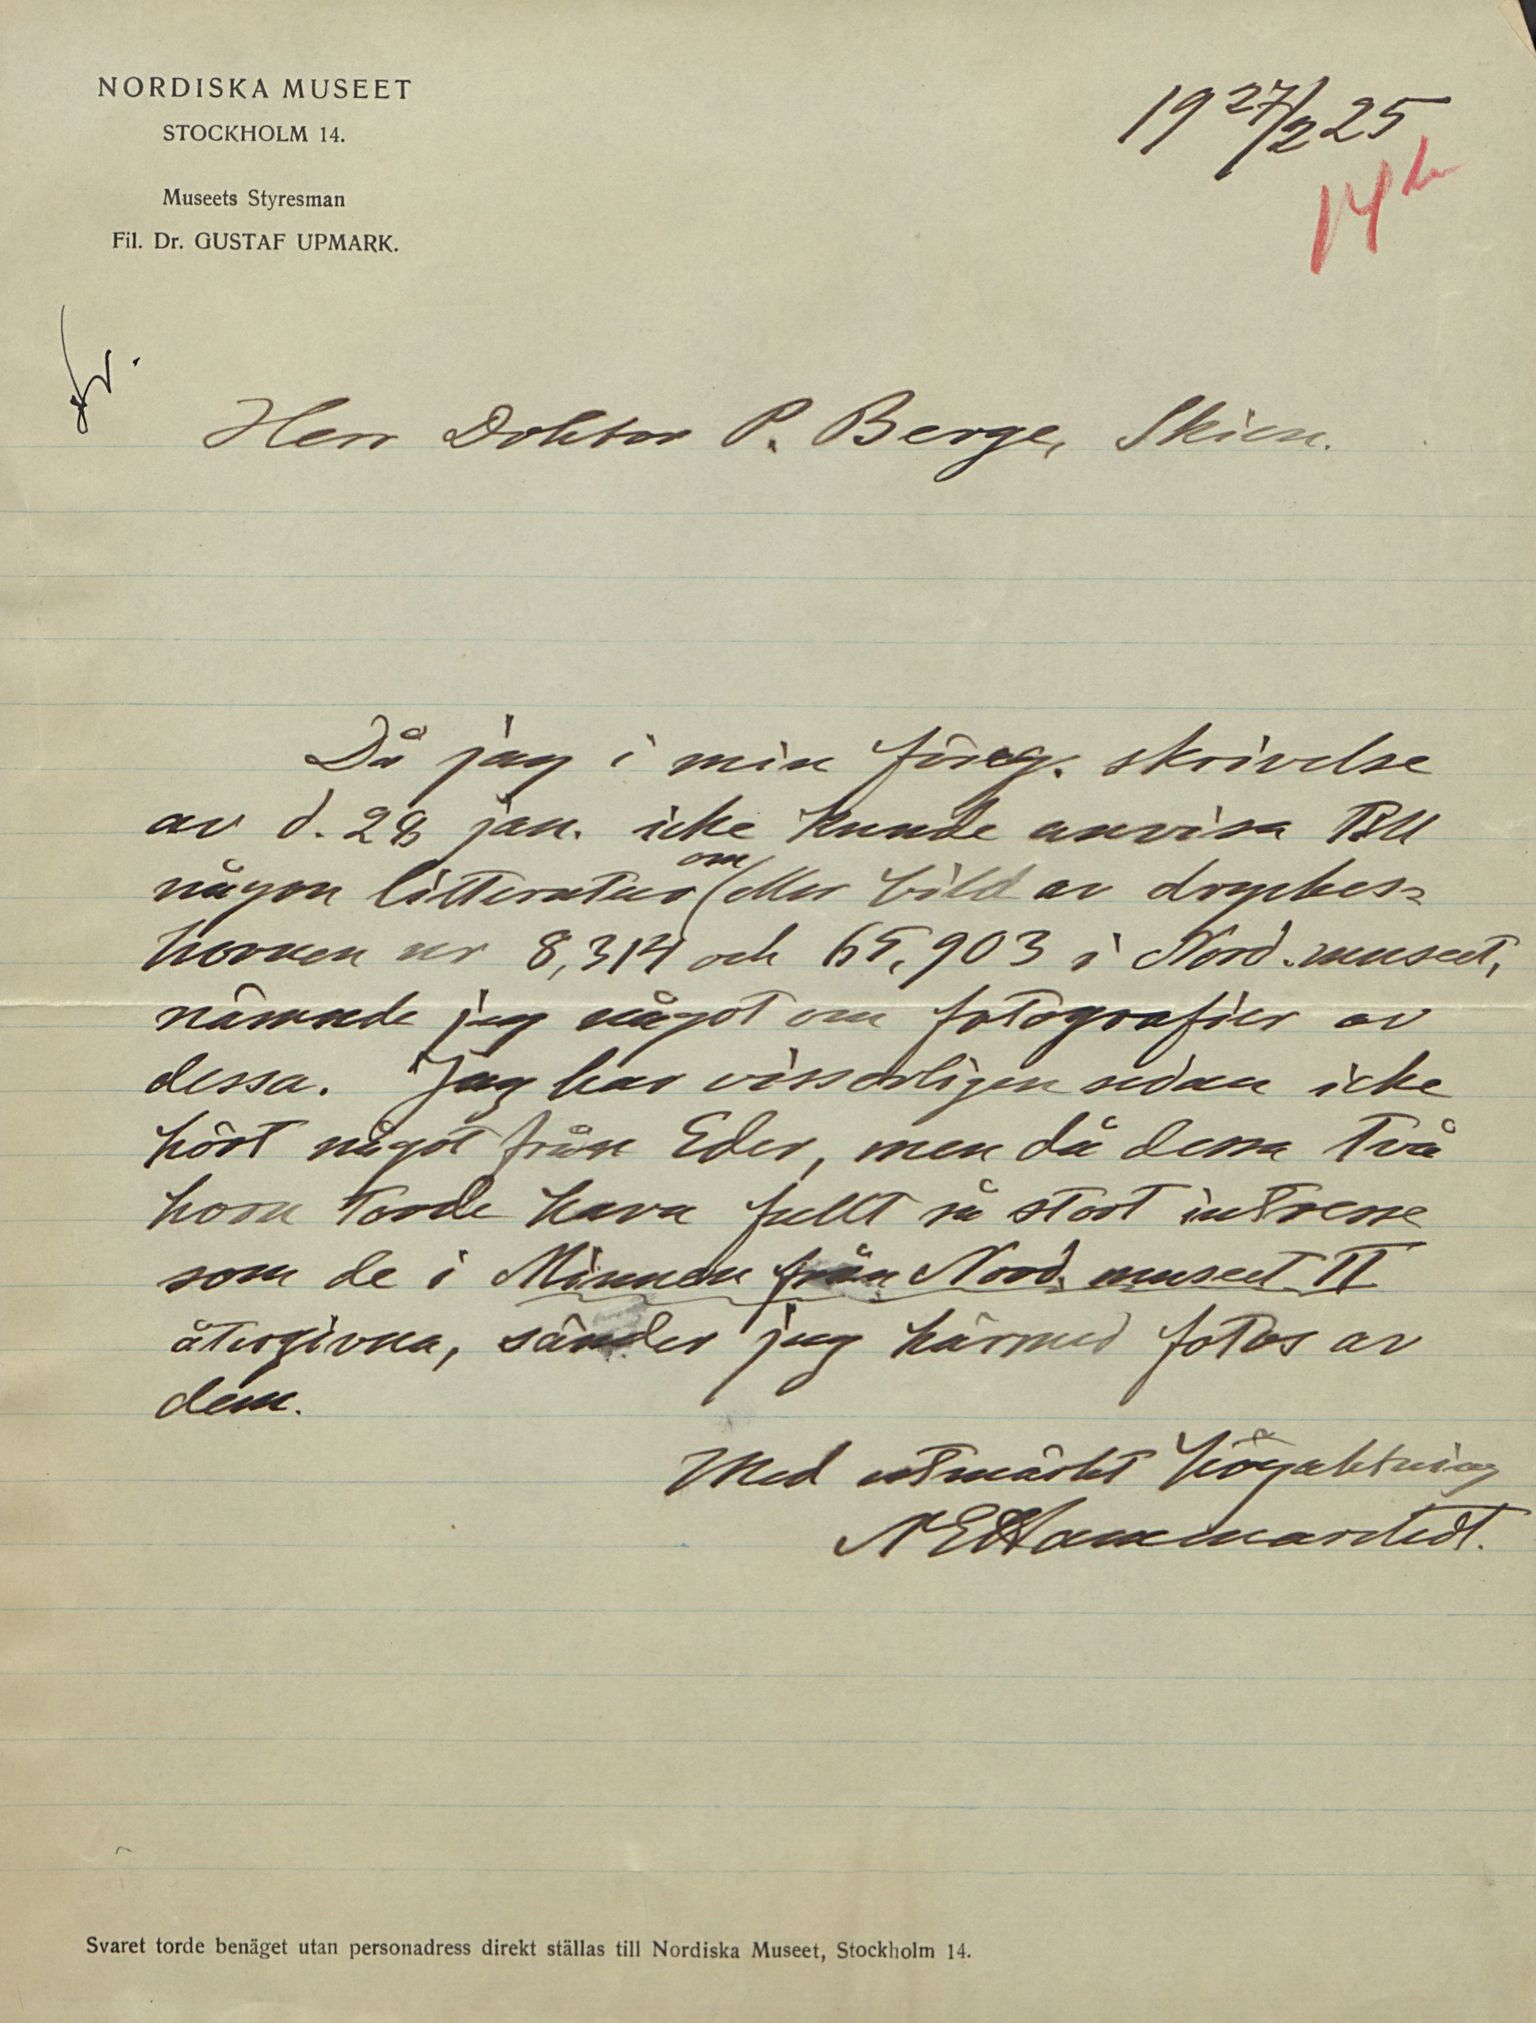 NORDISKA MUSEET
STOCKHOLM 14.
Museets Styresman
Fil. Dr. GUSTAF UPMARK.
19 27/2 25
Herr Doktor P. Berge, Skien.
Då jag i min föreg. skrivelse
av d. 28 jan. icke kunde anvisa
någon litteratur om eller bild av dryckes-
hornen nr 8,314 och 65,903 i Nord. museet,
nämnde jag något om fotografier av
dessa. Jag har visserligen sedan icke
hört något från Eder, men då dessa två
horn torde hava fullt så stort intresse
som de i Minnen från Nord. museet II
återgivna, sänder jag härmed fotos av
dem.
Med utmärkt högaktning
N E Hammarstedt.
Svaret torde benäget utan personadress direkt ställas till Nordiska Museet, Stockholm 14.